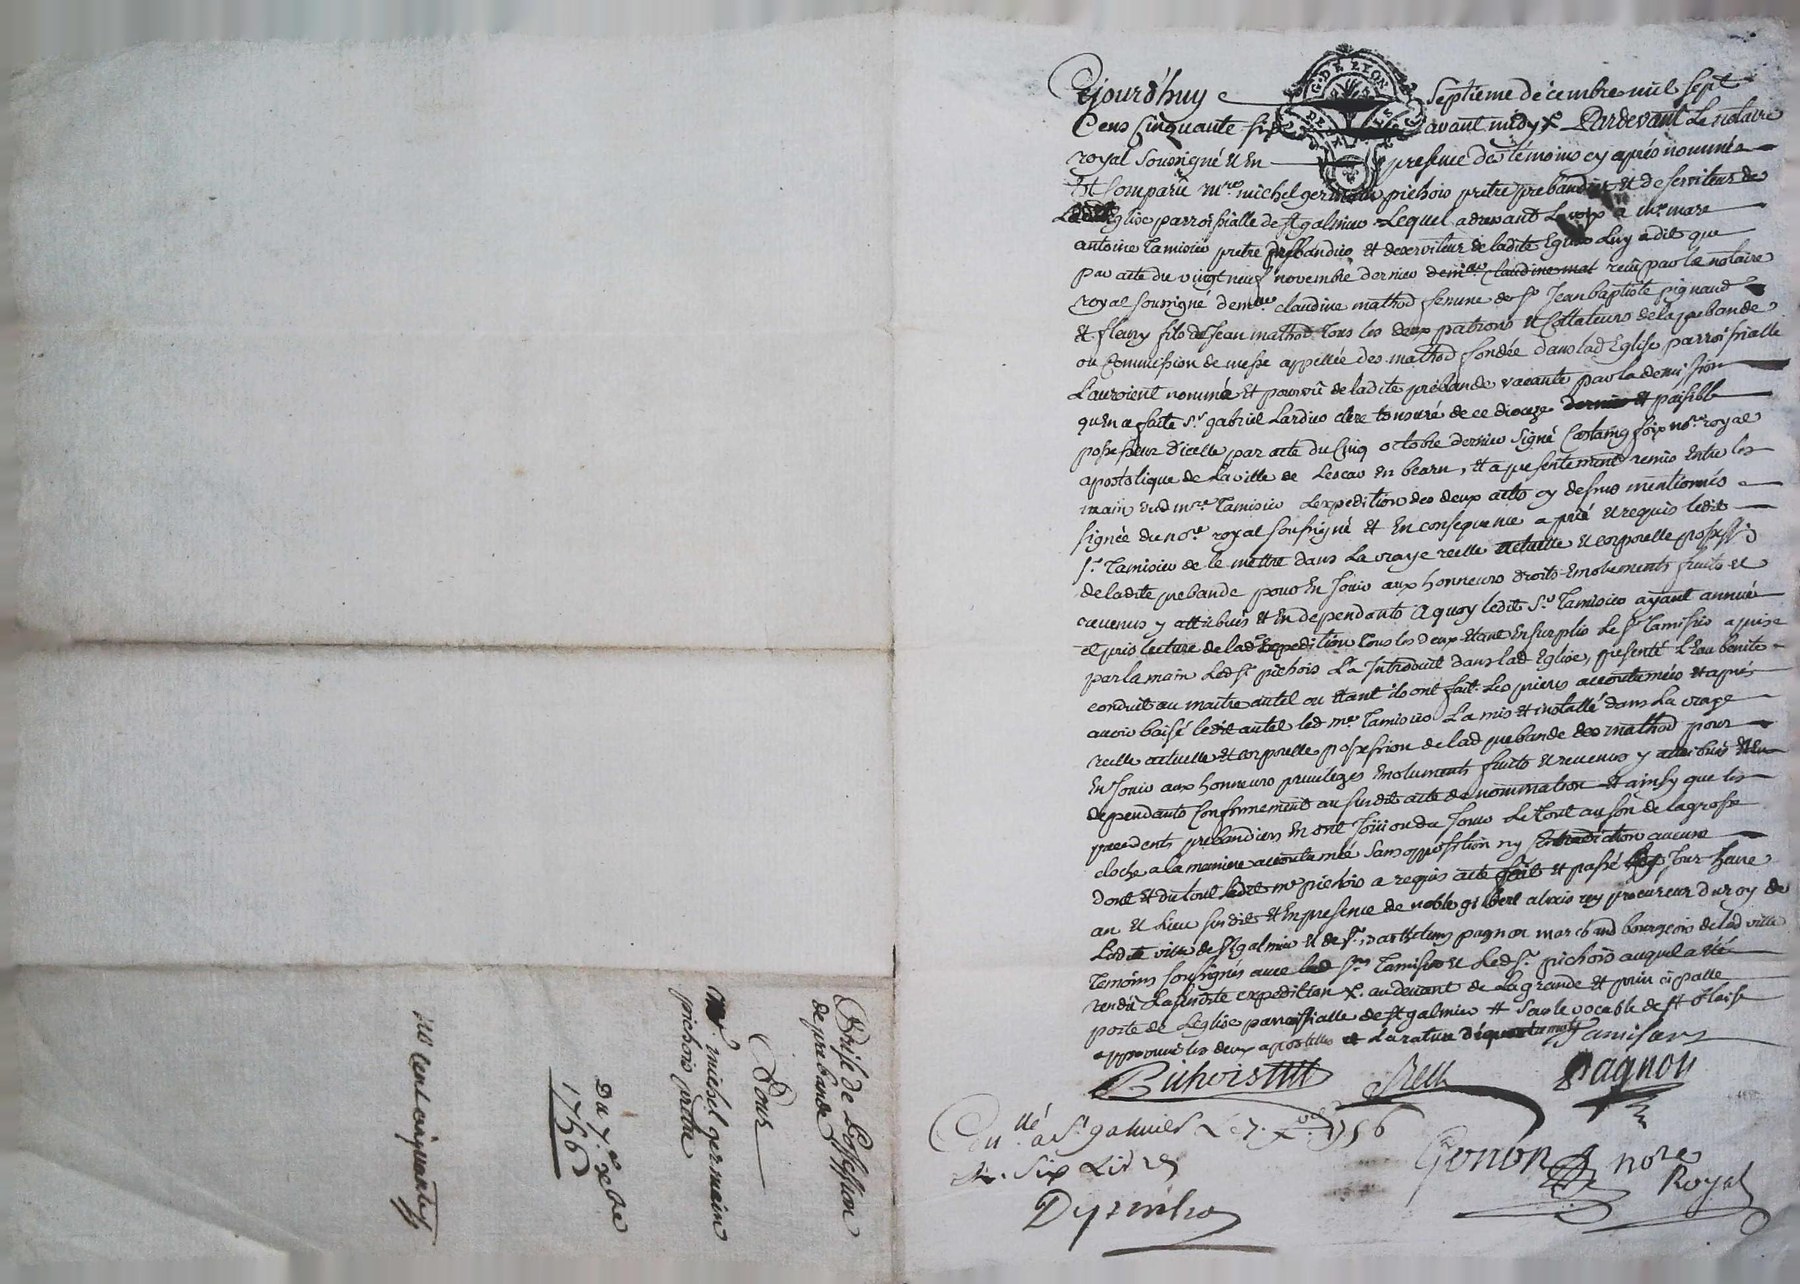 Ejourd'huy septieme decembre mil sept
G. DE LYON
Cens Cinquante six avant midy X Pardevant Le notaire
royal soussigné et En presence des témoins cy après nommés
Est Comparû mre michel germain pichois prêtre prebandier et desserviteur de
Eglise parroissialle de st galmier Lequel adressant La voix a mre marc
antoine Tamisier pretre prebandier et desserviteur de ladite Eglise Luy a dit que
par acte du vingt neuf novembre dernier recû par le notaire
royal soussigné demlle claudine mathod femme de sr Jean baptiste pignaud
et fleury fils de Jean mathod tous les deux patrons et Collateurs de la prebande
ou Commission de messe appellée des mathod fondée dans lad Eglise parroissialle
L'auroient nommé et pourvû de ladite prébande vacante par la demission
qu'en a faite sr gabriel Lardier clerc tonsuré de ce dioceze dernier et paisible
possesseur d'icelle par acte du Cinq octobre dernier signé nore royal
apostolique de La ville de Lescar en bearn, et a presentement remis Entre les
main dud mre Tamisier L'expedition des deux actes cy dessus mentionnés
signée du nore royal soussigné et En consequence a prié et requis ledit
sr Tamisier de le mettre dans La vraye reelle actuelle et corporelle possession
de ladite prebande pour En Jouir aux honneurs droits Emoluments fruits et
revenus y attribués et En dependants a quoy ledit sr Tamisier ayant annué
et pris lecture de lade Expedition tous les deux Etant En surplis Le sr Tamisier a prise
par la main Led sr pichois L'a Introduit dans lad Eglise, presenté L'Eau benite
conduit au maitre autel ou Etant ils ont fait Les prieres accoutumées et après
avoir baisé ledit autel led mre Tamisier L'a mis et installé dans La vraye
reelle actuelle et corporelle possession de lad prebande des mathod pour
En Jouir aux honneurs privileges Emoluments fruits et revenus y attribués et En
dependants Conformement au susdit acte de nomination et ainsy que les
precedents prebandiers En ont Joüi ou du Jouir Le tout au son de la grosse
cloche a la maniere accoutumée sans opposition ny Contradiction aucune
dont et du tout ledit mre pichois a requis acte fait et passé les Jour heure
an et Lieu susdits et En presence de noble gilbert alexis rey procureur du roy de
Ladite ville de st galmier et de sr barthelemy pagnon marchand bourgeois de lad ville
Temoins soussignés avec led srs Tamisier et Led sr pichois auquel a été
rendû La susdite expedition X. au devant de La grande et principalle
porte de L'eglise parroissialle de st galmier et sous le vocable de st blaise
approuvé les deux apostilles et La rature de quatre mots Tamisier
Pichois Rey Pagnon
Conllé a St galmier Le 7. Xbre 1756
R. Six Livres
Gonon nore
Royal
Brise de Possession
de prebande
Pour
mr. michel germain
pichois pretre
Du 7e debre
1756